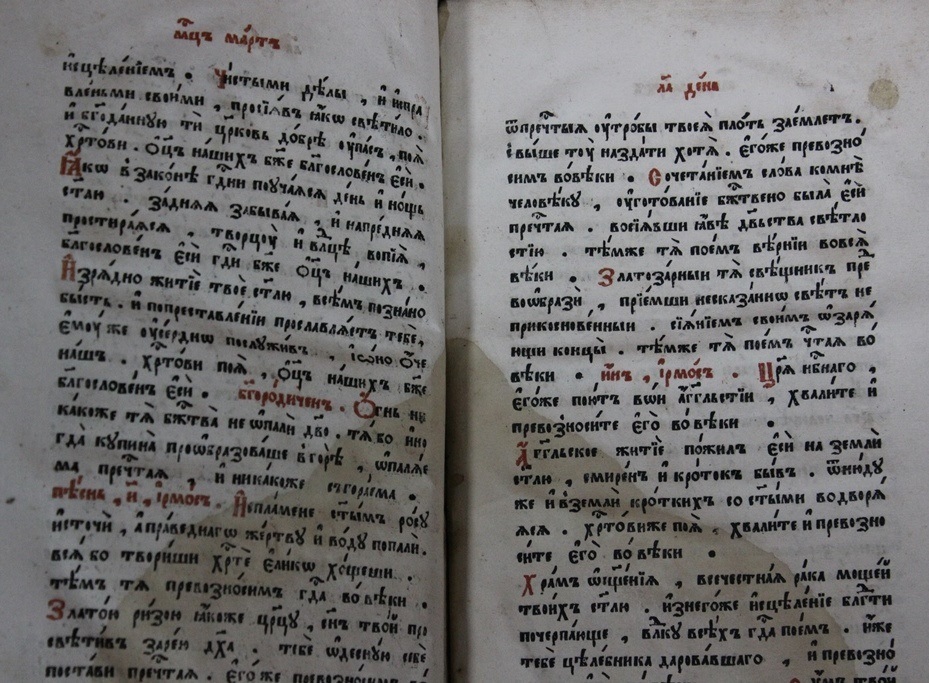 мц҃ъ ма́ртъ
и҆сцѣле́нїемъ . Чи́стыми дѣ́лы , и҆ и҆спра
вле́ньми свои́ми , просїѧ́въ ꙗ҆́кѡ свѣти́ло .
и҆ бг҃ода́нную тѝ цр҃ковь до́брѣ ᲂу҆па́съ , поѧ̀
хрⷭ҇то́ви . ѻ҆ц҃ъ на́шихъ бж҃е бл҃гослове́нъ є҆сѝ .
Ꙗ҆́кѡ в̾зако́нѣ гдⷭ҇ни поуча́ѧсѧ де́нь и҆ но́щь
ст҃лю . за́днѧѧ забыва́ѧ , и҆ напре́днѧѧ
простира́ѧсѧ , творцоу̀ и҆ влⷣцѣ , вопїѧ̀ ,
бл҃гослове́нъ є҆сѝ гдⷭ҇и бж҃е ѻ҆ц҃ъ на́шихъ .
И҆зрѧ́дно житїѐ твоѐ ст҃лю , всѣ́мъ позна́но
бы́сть . и҆ попреставле́нїи прославлѧ́етъ тебѐ ,
є҆моу́же ᲂу҆се́рднѡ послужи́въ , і҆ѡ́но ѻ҆́ч҃е
на́шъ . хрⷭ҇то́ви поѧ̀ , ѻ҆ц҃ъ на́шихъ бж҃е
бл҃гослове́нъ є҆сѝ . бг҃оро́диченъ . Ѻ҆́гнь не
ка́коже тѧ̀ бж҃тва̀ не ѡ҆палѝ дв҃о . тѧ́ бо и҆но
гда̀ купина̀ проѡ҆бразова́ше в̾горѣ̀ , ѡ҆палѧ́е
ма пречⷭ҇таѧ , и҆ ника́коже съгора́ема .
пѣ́снь , и҃ , і҆рмо́съ . И҆спла́мене ст҃ы́мъ ро́су
и҆сточѝ , а҆ пра́веднагѡ же́ртву и҆ во́ду попалѝ .
всѧ̑ бо твори́ши хрⷭ҇те є҆ли́кѡ хо́щеши .
тѣ́мъ тѧ̀ превозно́симъ гдⷭ҇а во́ вѣки .
Злато́ю ри́зою ꙗ҆́коже цр҃цу , сн҃ъ тво́й про
свѣти́въ заре́ю дх҃а . тебѐ ѡ҆десну́ю себѐ
поста́ви пречⷭ҇таѧ . є҆го́же превозно́симъ во
л҃а де́нь
ѿпречⷭ҇тыѧ ᲂу҆тро́бы твоеѧ̀ пло́ть зае́млетъ .
свы́ше тоу̀ назда́ти хотѧ̀ . є҆го́же превозно́
симъ вовѣ́ки . Сочета́нїемъ сло́ва комнѣ̀
человѣ́ку , ᲂу҆готова́нїе бж҃твено была̀ є҆сѝ
пречⷭ҇таѧ . восїѧ́вши ꙗ҆́вѣ дв҃ства свѣ́тло
стїю . тѣ́мже тѧ̀ пое́мъ вѣ́рнїи вовсѧ̀
вѣ́ки . Златоза́рныи тѧ̀ свѣ́щникъ пре
воѡ҆бразѝ , прїе́мши несказа́ннѡ свѣ́тъ не
прикоснове́нныи . сїѧ́нїемъ свои́мъ ѡ҆зарѧ́
ющи концы̀ . тѣ́мже тѧ̀ пое́мъ чⷭ҇таѧ во́
вѣки . и҆́нъ , і҆рмо́съ . Цр҃ѧ̀ нбⷭ҇наго ,
є҆го́же пою́тъ во́и а҆́гг҃льстїи , хвали́те и҆
превозноси́те є҆го̀ во́ вѣки .
А҆́гг҃льское житїѐ пожи́лъ є҆сѝ на землѝ
ст҃лю , смире́нъ и҆ кро́токъ бы́въ . ѿню́ду
же и҆ в̾землѝ кро́ткихъ со ст҃ы́ми водворѧ́
ѧсѧ . хрⷭ҇то́виже поѧ̀ , хвали́те и҆ превозно
си́те є҆го̀ во́ вѣки .
Хра́мъ ѡ҆чище́нїѧ , всечестна́ѧ ра́ка моще́й
твои́хъ ст҃лю . и҆знего́же и҆сцѣле́нїе блгⷣти
почерпа́юще , влⷣку всѣ́хъ гдⷭ҇а пое́мъ . и҆́же
тебѐ цѣле́бника дарова́вшаго , и҆ превозно́